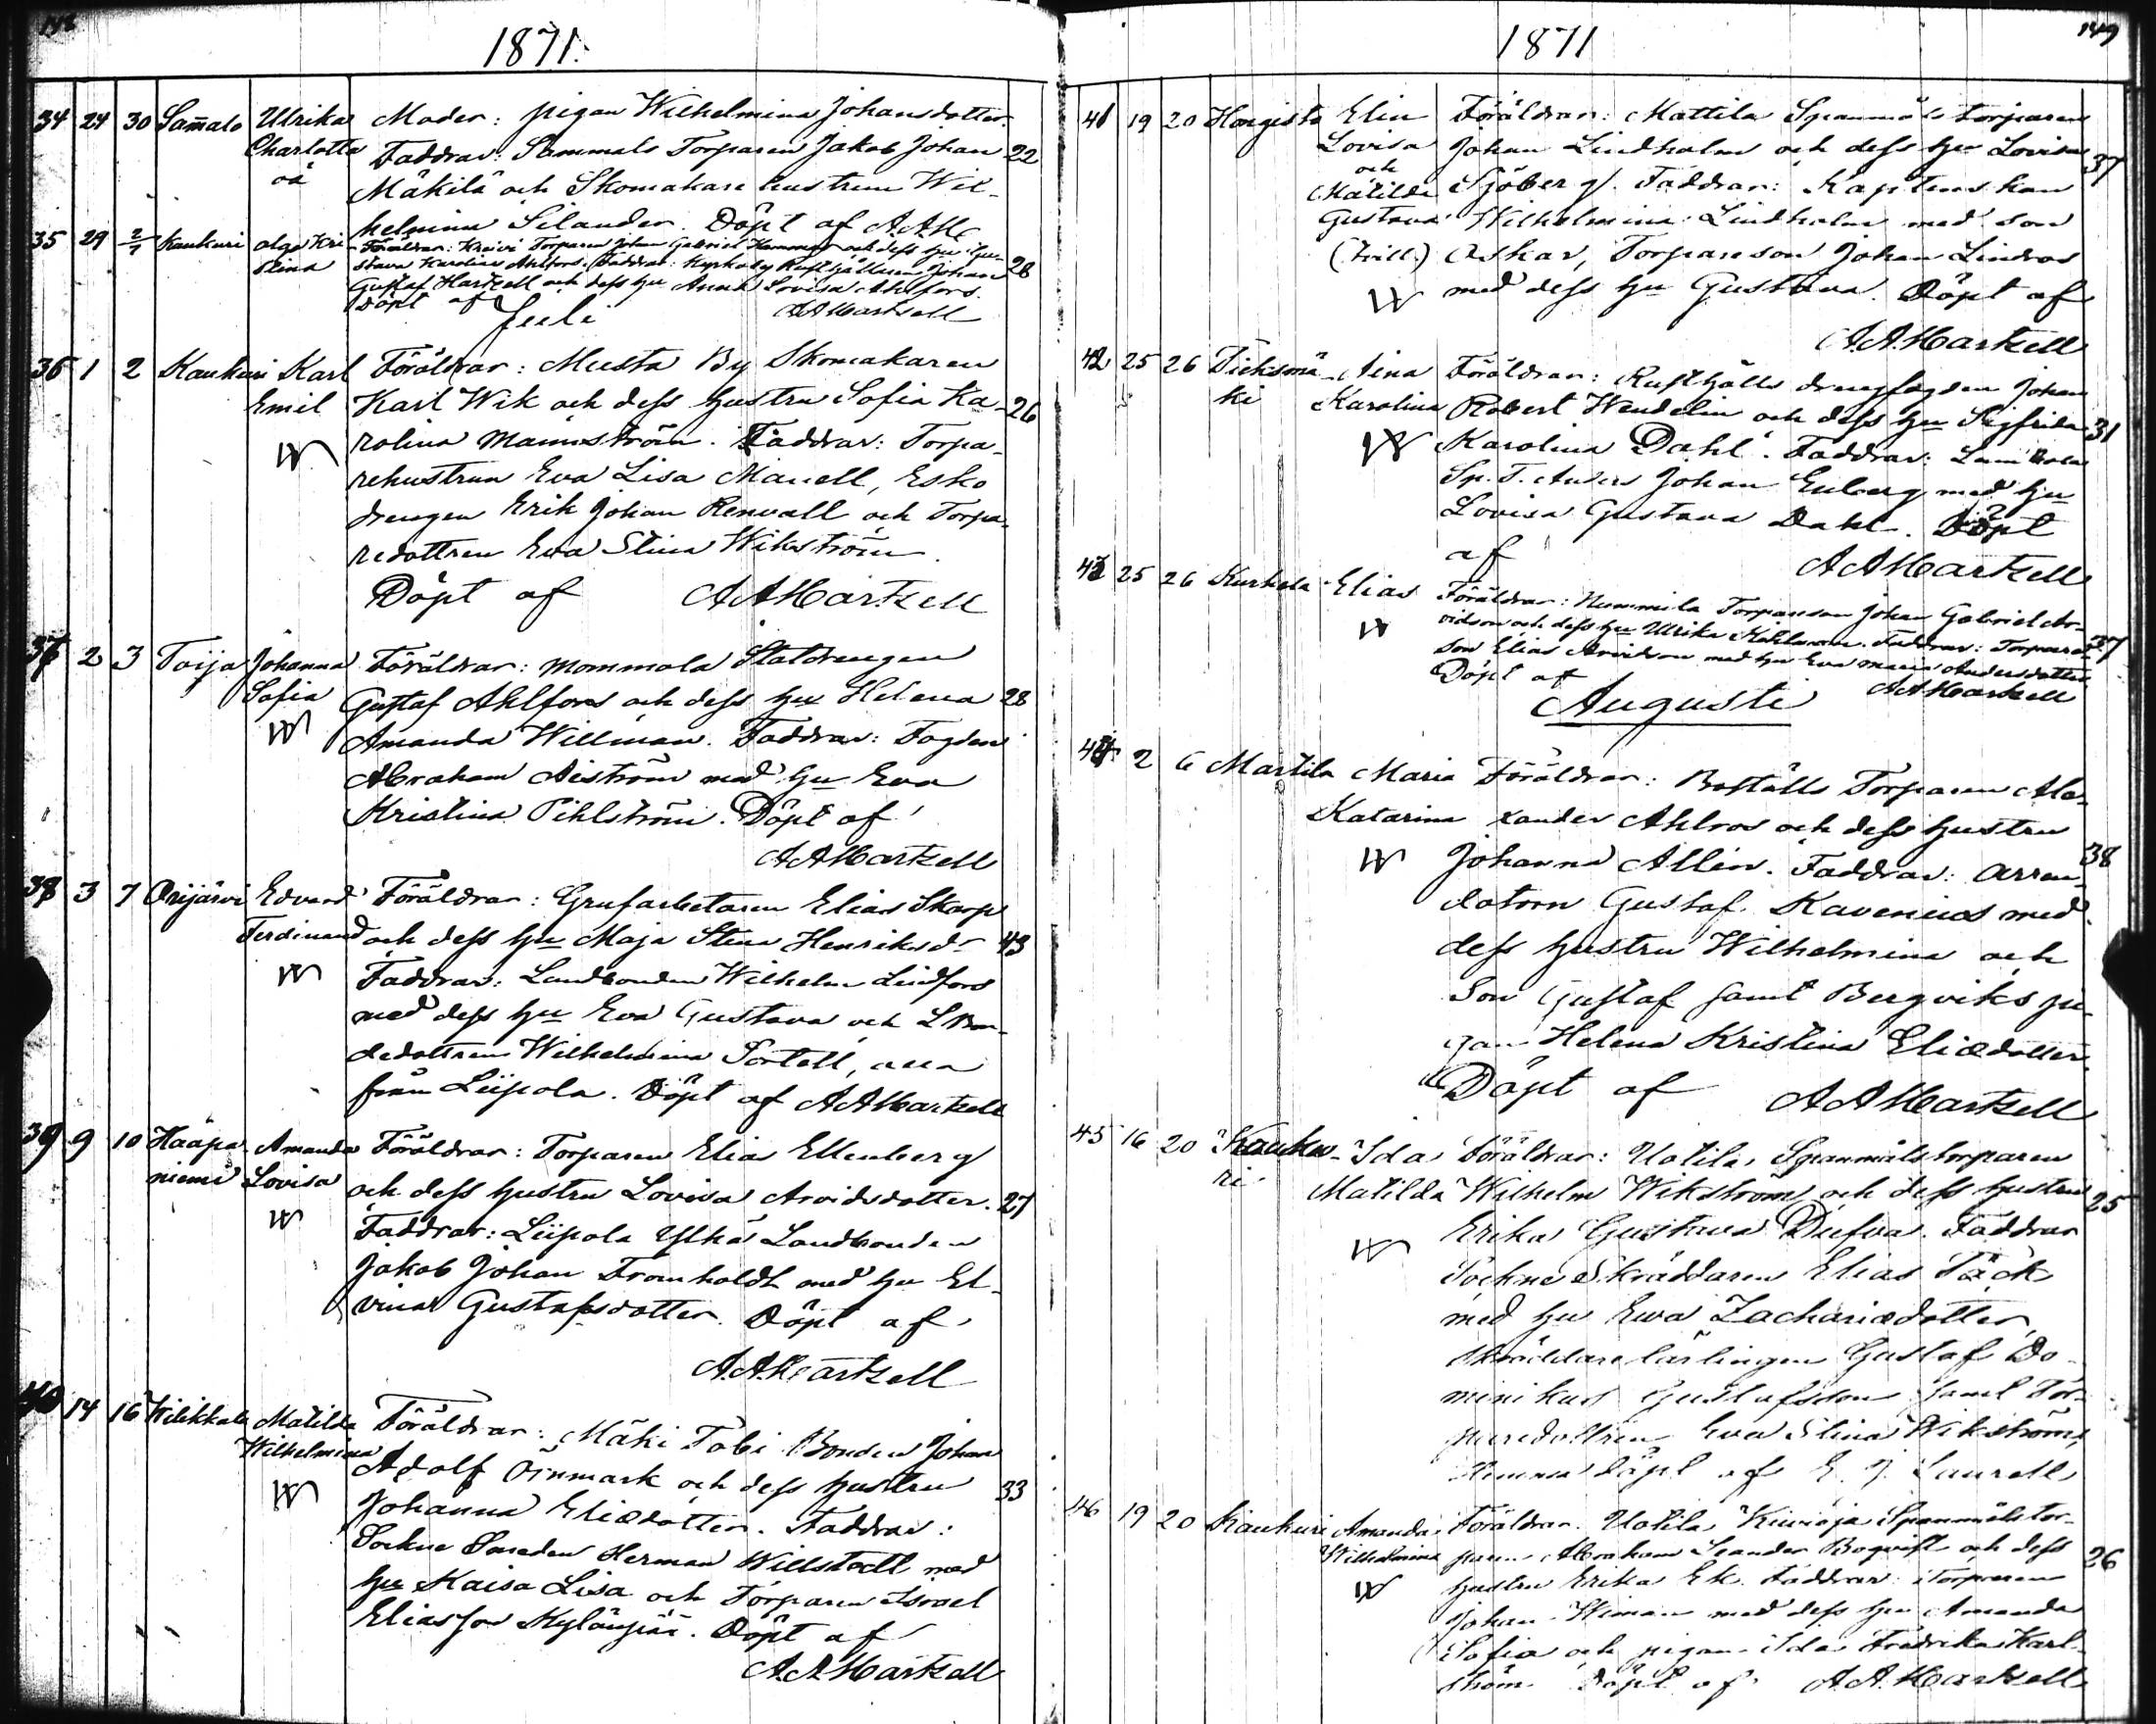 148
1871.
34 24 30 Sammalo Ulrika Moder: pigan Wilhelmina Johansdotter.
Charlotta Faddrar: Sammalo Torparen Jakob Johan 22
oä Mäkilä och Skomakare hustrun Wil-
helmina Silander. Döpt af AAH
35 29 2/7 Kaukuri Olga Kri- Föräldrar: Kreivi Torparen Johan Gabriel och dess hu Gu-
stina stava Karolina Ahlfors. Faddrar: Kyrkoby Rusthållaren Johan 28
Gustaf Hartzell och dess hu Anna Lovisa Ahlfors.
Döpt af AAHartzell
Juli
36 1 2 Kaukuri Karl Föräldrar: Musta By Skomakaren
Emil Karl Wik och dess hustru Sofia Ka- 26
rolina Mannström. Faddrar: Torpa-
rehustrun Eva Lisa Manell, Esko
drengen Erik Johan Renvall och Torpa-
redottren Eva Stina Wikström.
Döpt af AAHartzell
37 2 3 Toija Johanna Föräldrar: Mommola Statdrengen
Sofia Gustaf Ahlfors och dess hu Helena 28
Amanda Willman. Faddrar: Fogden
Abraham Aiström med hu Eva
Kristina Pihlström. Döpt af
AAHartzell
38 3 7 Orijärvi Edvard Föräldrar: Grufarbetaren Elias Skarp
Ferdinand och dess hu Maja Stina Henriksdr 43
Faddrar: Landbonden Wilhelm Lindfors
med dess hu Eva Gustava och LBon-
dedottren Wilhelmina Sortell, alla
från Liipola. Döpt af AAHartzell
39 9 10 Haapa- Amanda Föräldrar: Torparen Elia Ellenberg
niemi Lovisa och dess hustru Lovisa Arvidsdotter. 27
Faddrar: Liipola Ylhä Landbonden
Jakob Johan Fromholdt med hu El-
vina Gustafsdotter. Döpt af
AAHartzell
40 14 16 Wilikkala Matilda Föräldrar: Mäki Tobi Bonden Johan
Wilhelmina Adolf Öinmark och dess hustru 33
Johanna Eliædotter. Faddrar:
Sockne Smeden Herman Willstedt med
hu Kaisa Lisa och Torparen Israel
Eliasson Kylänpää. Döpt af
AAHartzell
149
1871
41 19 20 Hongisto Elin Föräldrar: Mattila Spanmåls torparen
Lovisa Johan Lindholm och dess hu Lovisa 37
och
Matilda Sjöberg. Faddrar: Kaptenskan
Gustava Wilhelmina Lindholm med son
(Tvill.) Oskar, Torpareson Johan Lindros
med dess hu Gustava. Döpt af
A.A.Hartzell
42 25 26 Fiskonä- Aina Föräldrar: Rusthålls drengfogden Johan
ki Karolina Robert Wendelin och dess hu Sigfrida 31
Karolina Dahl. Faddrar:
Sp. T. Anders Johan Enberg med hu
Lovisa Gustava Dahl. Döpt
af AAHartzell
43 25 26 Kurkela Elias Föräldrar: Nummila Torpareson Johan Gabriel Ar-
vidson och dess hu Ulrika Faddrar: Torpare- 37
son Elias Arvidson med hu Eva Maria Andersdotter
Döpt af AAHartzell
Augusti
44 2 6 Martila Maria Föräldrar: Boställs Torparen Ale-
Katarina xander Ahlroos och dess hustru
Johanna Allén. Faddrar: Arren- 38
datorn Gustaf Kavenius med
dess hustru Wilhelmina och
Son Gustaf samt Bergviks pi-
gan Helena Kristina Eliædotter.
Döpt af AAHartzell
45 16 20 Kauku- Ida Föräldrar: Uotila Spanmålstorparen
ri Matilda Wilhelm Wikström och dess hustru 25
Erika Gustava Dufva. Faddrar
Sockne Skräddaren Elias Täck
med hu Eva Zachariædotter,
Skräddare lärlingen Gustaf Do-
minikus Gustafsson samt Tor-
paredottren Eva Stina Wikström,
Döpt af E. J. Laurell
46 19 20 Kaukuri Amanda Föräldrar. Uotila Kivioja Spanmåls tor-
Wilhelmina paren Abraham Leander Boqvist och dess 26
hustru Erika Ek. Faddrar: Torparen
Johan Wiman med dess hu Amanda
Sofia och pigan Ida Fredrika Karl-
ström Döpt af A.A.Hartzell